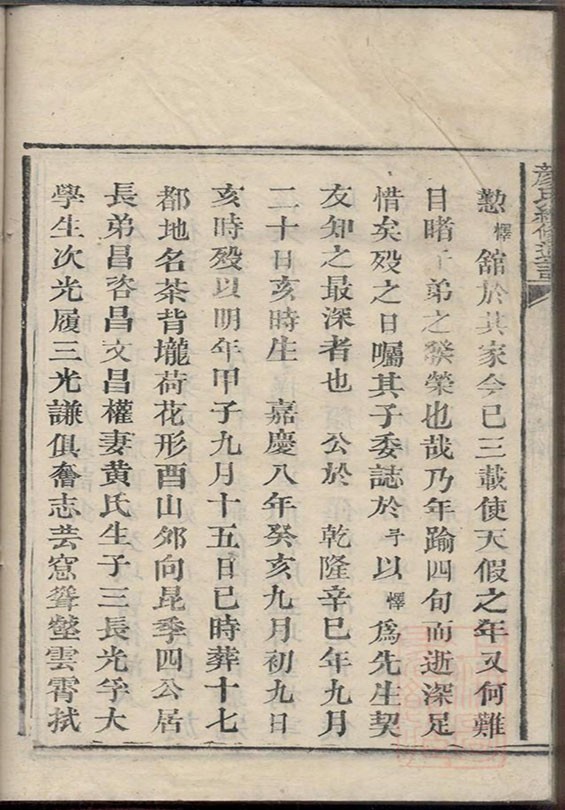 懃懌舘於其家今已三載使天假之年又何難
目睹子弟之發榮也哉乃年踰四旬而逝深足
惜矣歿之日囑其子委誌於予以懌爲先生契
友知之最深者也 公於 乾隆辛巳年九月
二十日亥時生 嘉慶八年癸亥九月初九日
亥時歿以明年甲子九月十五日巳時葬十七
都地名茶背壠荷花形酉山夘向昆季四公居
長弟昌咨昌文昌權妻黃氏生子三長光孚大
學生次光履三光謙俱奮志芸窓聳壑雲霄拭